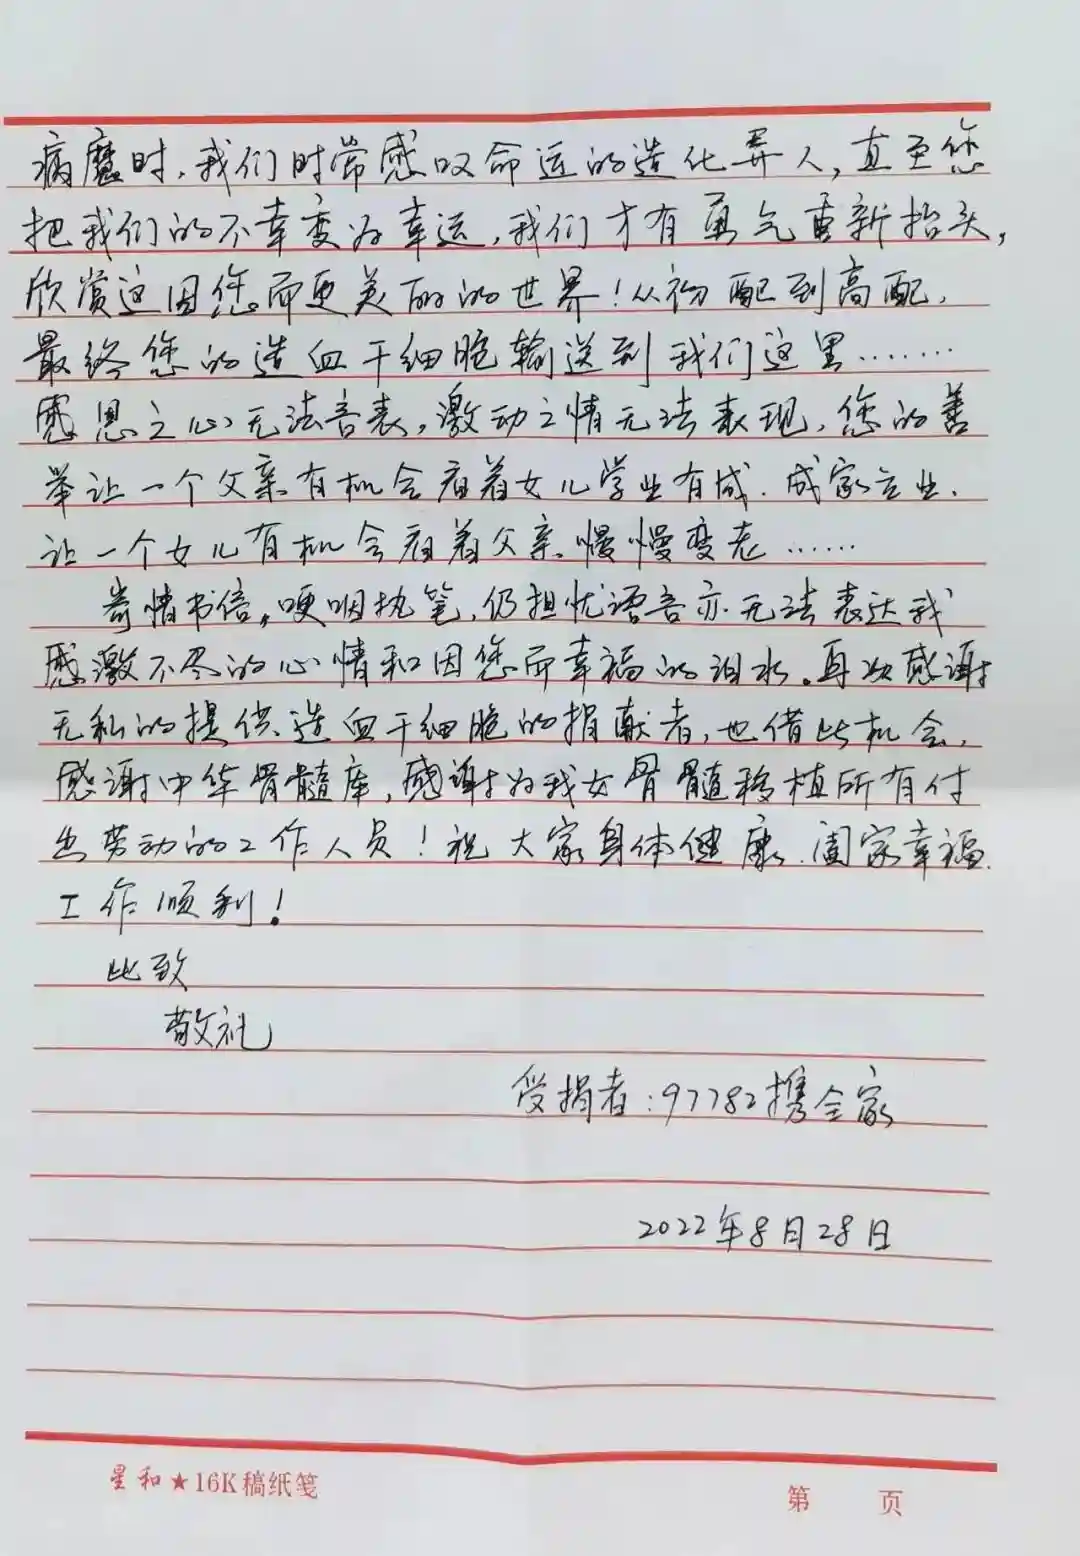 病魔时，我们时常感叹命运的造化弄人，直至您
把我们的不幸变为幸运，我们才有勇气重新抬头，
欣赏这因您而更美丽的世界！从初配到高配，
最终您的造血干细胞输送到我们这里……
感恩之心无法言表，激动之情无法表现，您的善
举让一个父亲有机会看着女儿学业有成、成家立业、
让一个女儿有机会看着父亲慢慢变老……
寄情书信，哽咽执笔，仍担忧语言亦无法表达我
感激不尽的心情和因您而幸福的泪水。再次感谢
无私的提供造血干细胞的捐献者，也借此机会，
感谢中华骨髓库，感谢为我女骨髓移植所有付
出劳动的工作人员！祝大家身体健康、阖家幸福、
工作顺利！
此致
敬礼
受捐者：97782携全家
2022年8月28日
星和★16K稿纸笺 第 页